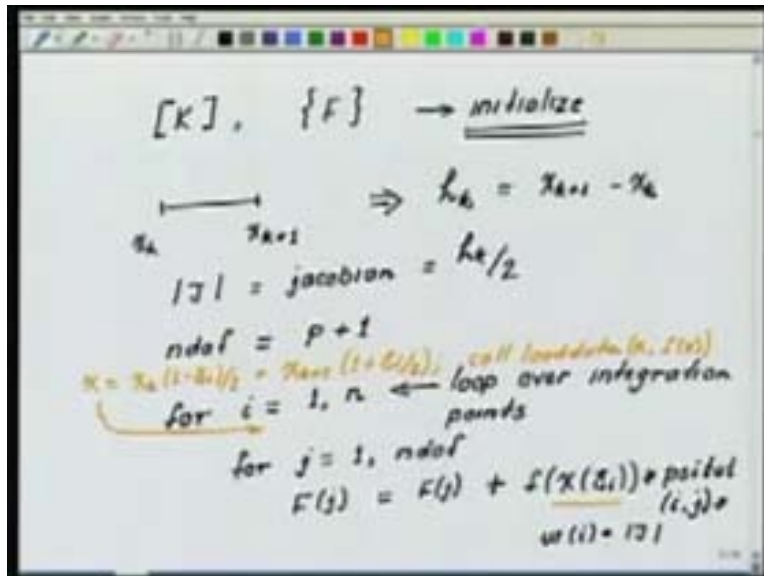 [K], {F} → initialize
⇒ h_k = x_{k+1} - x_k
x_k x_{k+1}
|J| = jacobian = h_k/2
ndof = p + 1
x = x_k (1-ξ_i)/2 + x_{k+1} (1+ξ_i)/2, call loaddata (x, f(x))
for i = 1, n ← loop over integration
points
for j = 1, ndof
F(j) = F(j) + f(x(ξ_i)) *
(i,j) *
wt(i) * |J|